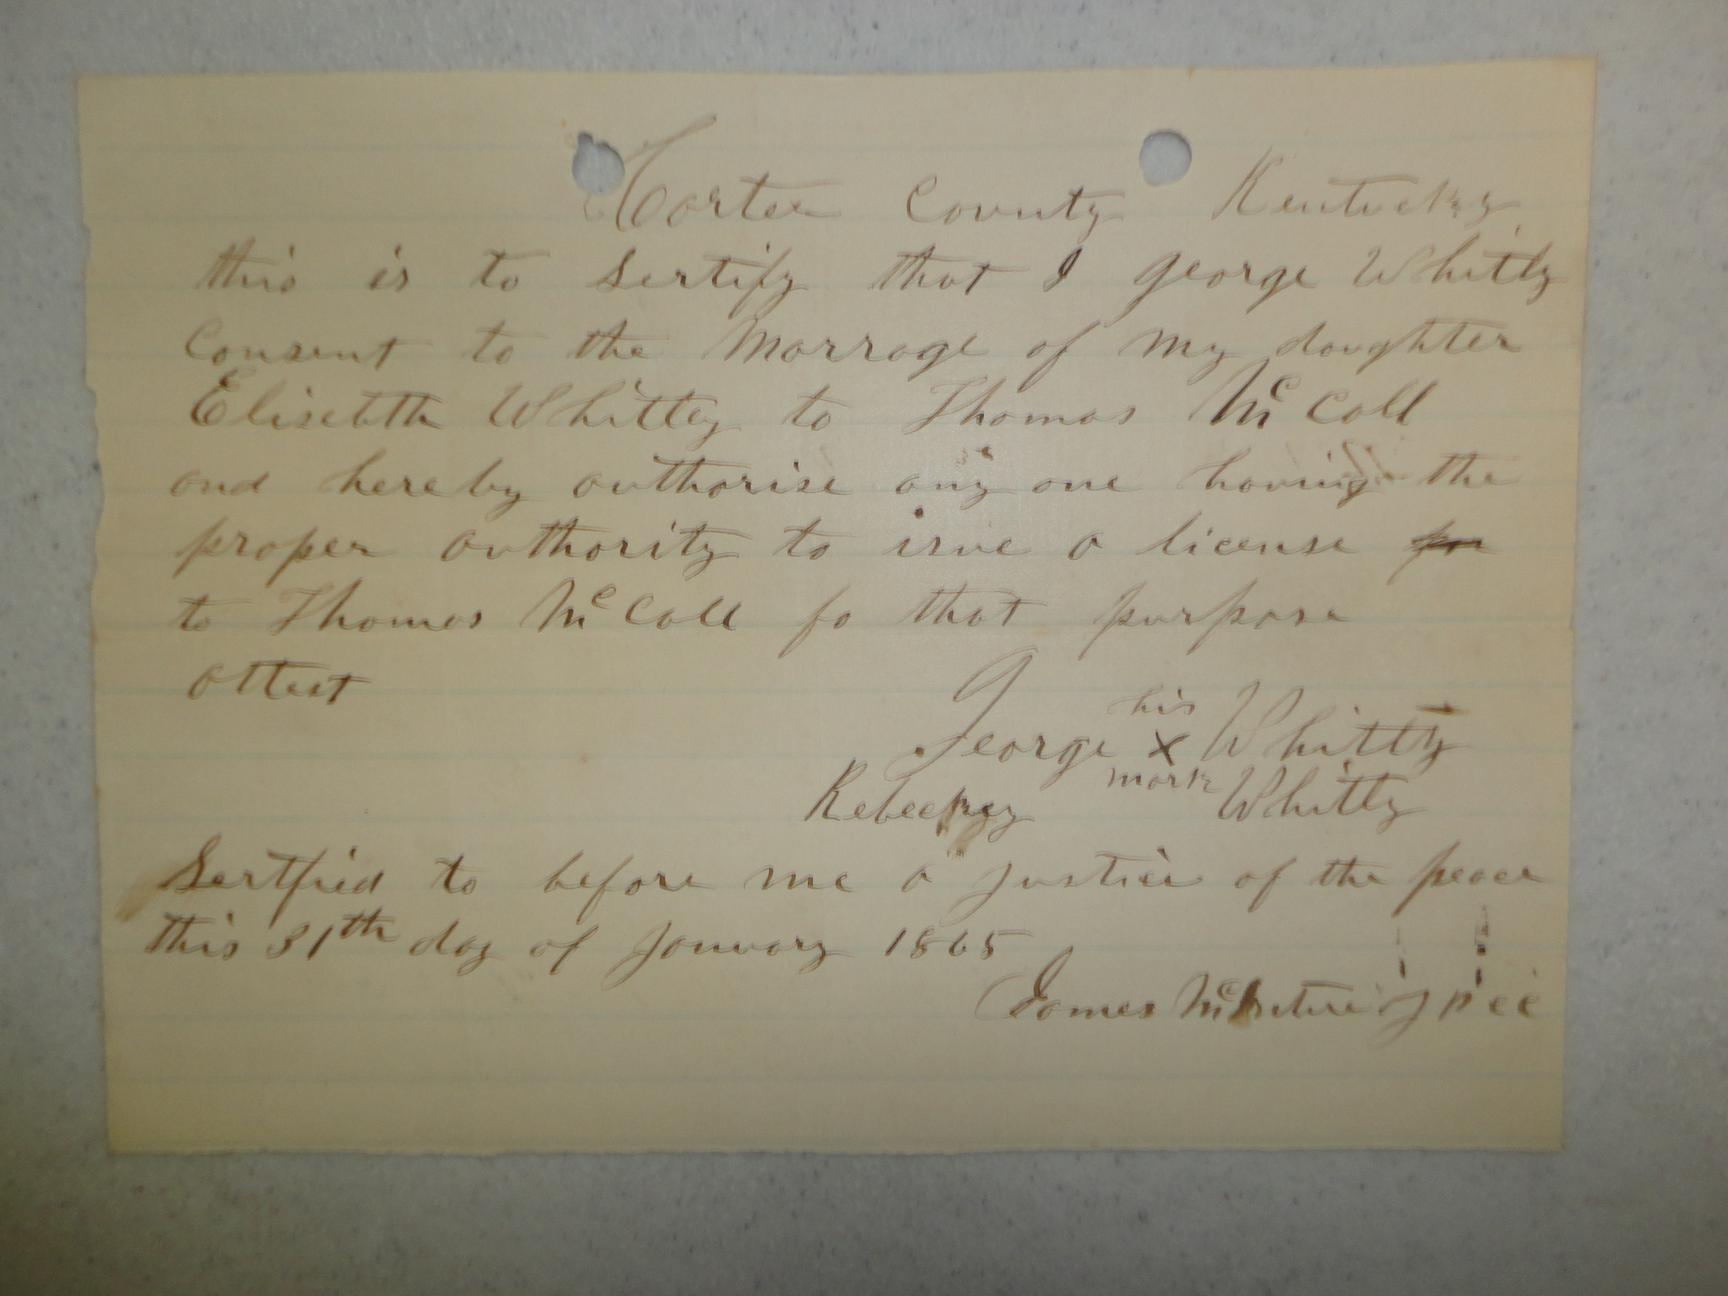 Carter County Kentucky
this is to Sertify that I George Whitly
Consent to the Marrage of my daughter
Elisebth Whittey to Thomas McCall
and hereby authorise any one having the
proper authority to isue a license for
to Thomas McCall fo that purpose
attest
his
George x Whitty
mark
Rebeckey Whitty
Sertfied to before me a justice of the peace
this 31th day of January 1865
James